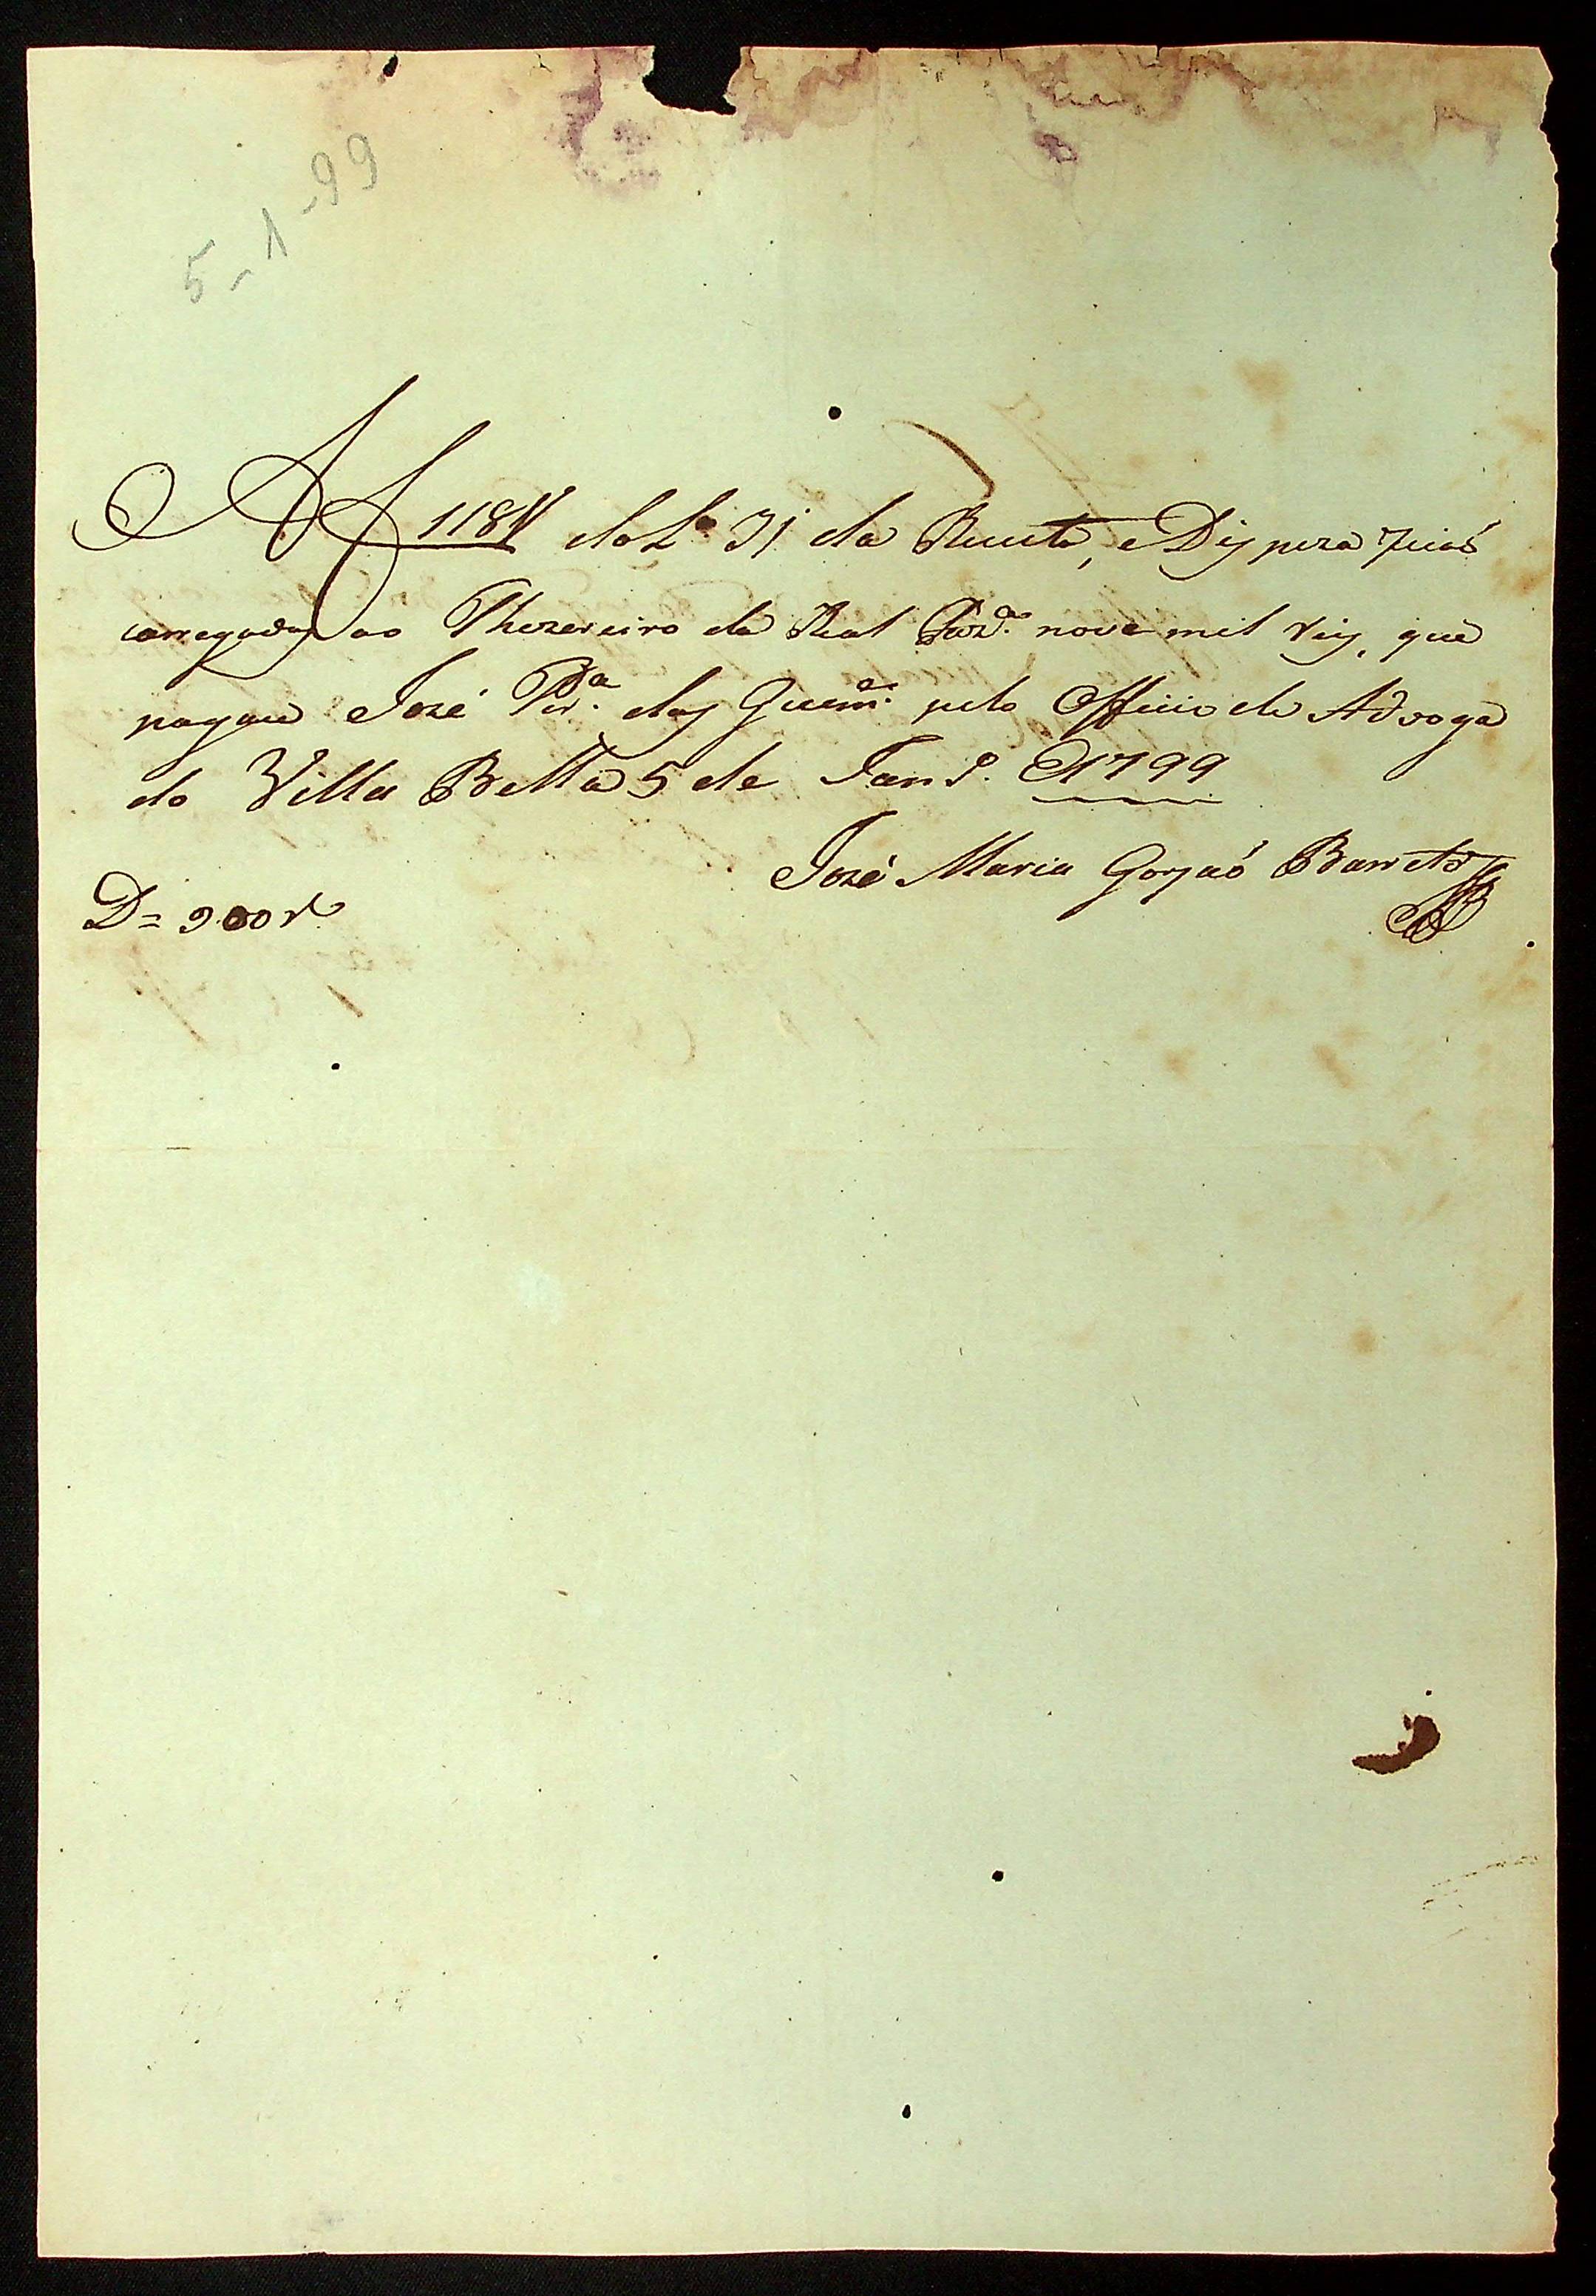 5-1-99
A f 118V do L.º 31 da Receita, e Dispeza ficaõ
carregados ao Thezoureiro da Real Fazd.ª nove mil reis, que
pagou José Per.ª dos Guim.es pelo Officio de Advoga
do Villa Bella 5 de Janr.º de 1799
José Maria Gorjaõ Barreto
D= 900 r.s